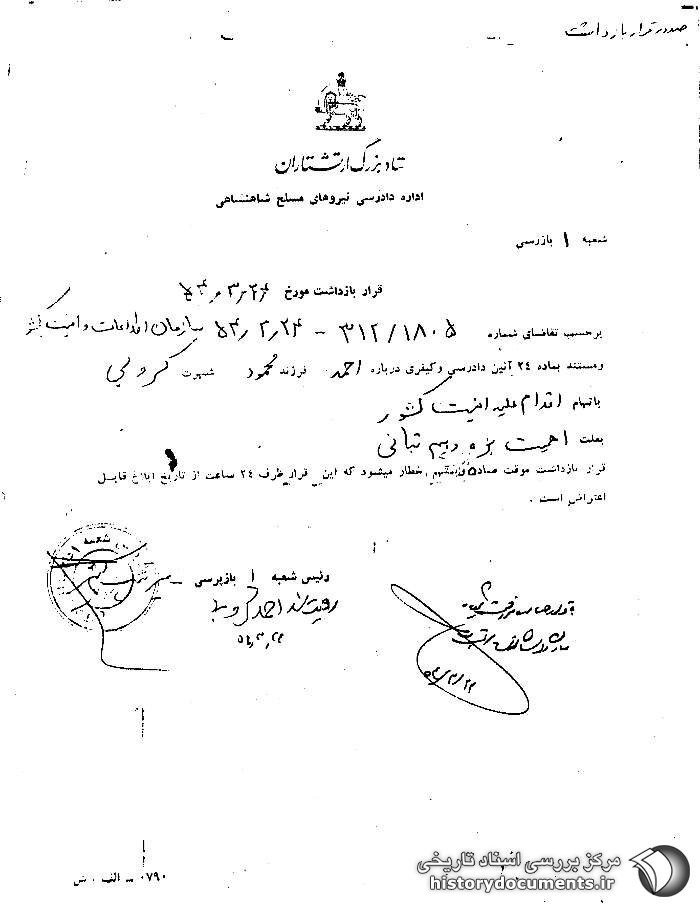 صدور قرار بازداشت
ستاد بزرگ ارتشتاران
اداره دادرسی نیروهای مسلح شاهنشاهی
شعبه ۱ بازرسی
قرار بازداشت مورخ ۵۴٫۳٫۲۴
برحسب تقاضای شماره ۳۱۲/۱۸۰۵ – ۵۴٫۳٫۲۴ سازمان اطلاعات و امنیت کشور
ومستند بماده ۲۴ آئین دادرسی وکیفری درباره احمد فرزند محمود شهرت کروبی
باتهام اقدام علیه امنیت کشور
بعلت اهمیت بزه و بیم تبانی
قرار بازداشت موقت صادر و بمتهم اخطار میشود که این قرار ظرف ۲۴ ساعت از تاریخ ابلاغ قابل
اعتراض است .
شعبه
رئیس شعبه ۱ بازپرسی
رویت شد احمد کروبی
۵۴/۳/۲۴
۰۷۹۰ ــ الف . ش
مرکز بررسی اسناد تاریخی
historydocuments.ir